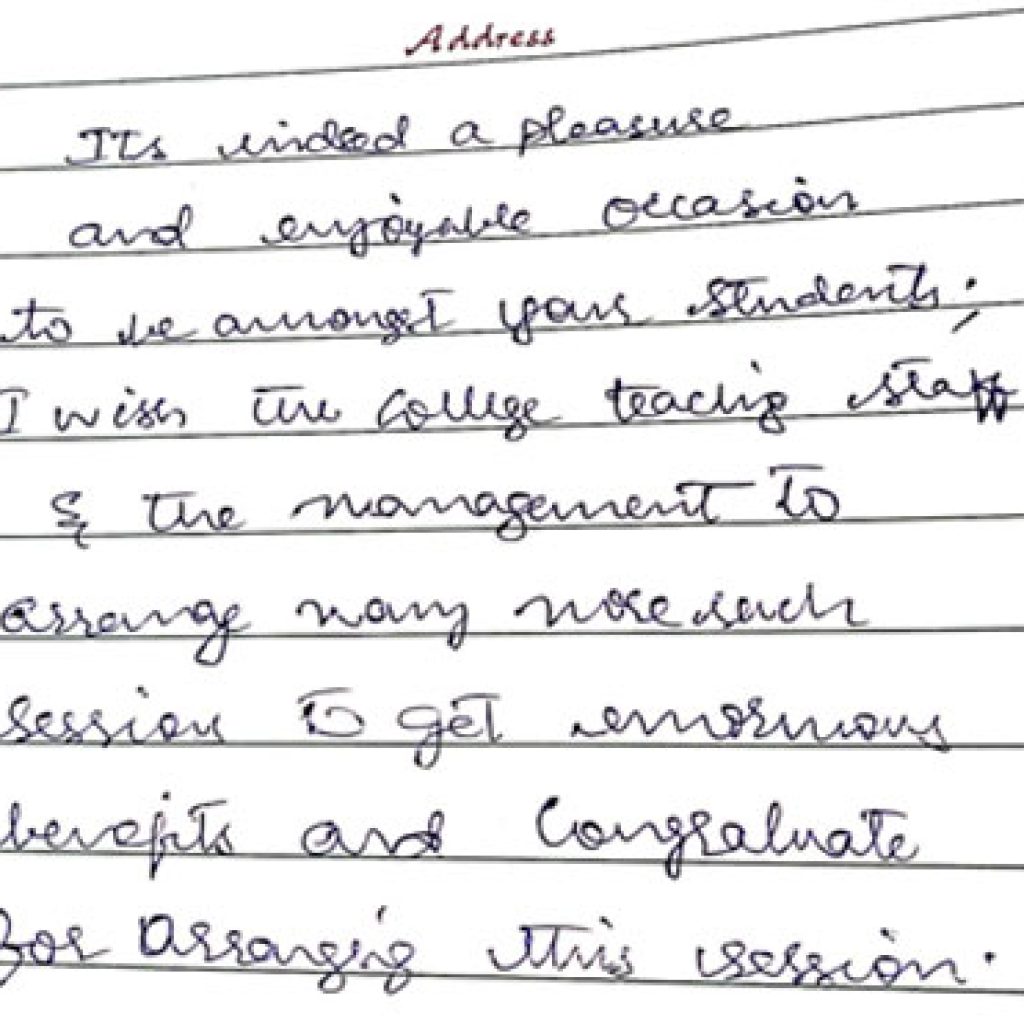 Address
Its indeed a pleasure
and enjoyable occasion
to be amongst your students;
I wish the college teachig staff
& the management to
arrange many more such
session to get enormous
benefits and Congraluate
for Arrangig this session.